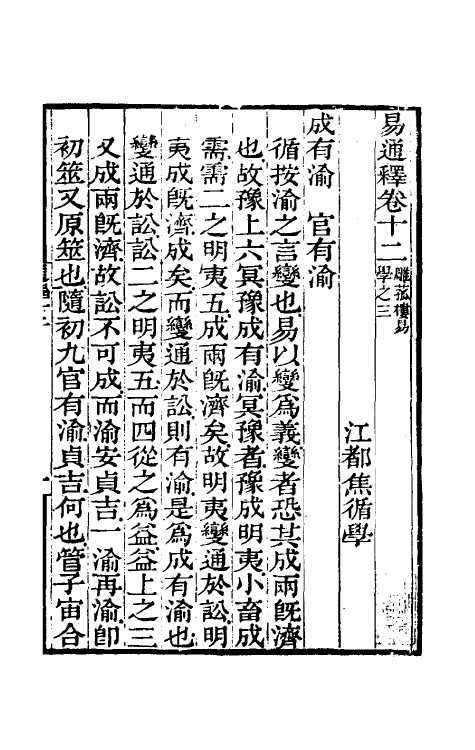 易通釋卷十二
雕菰樓易
學之三
江都焦循學
成有渝　官有渝
循按渝之言變也易以變爲義變者恐其成兩旣濟
也故豫上六冥豫成有渝冥豫者豫成明夷小畜成
需需二之明夷五成兩旣濟矣故明夷變通於訟明
夷成旣濟成矣而變通於訟則有渝是爲成有渝也
變通於訟訟二之明夷五而四從之爲益益上之三
又成兩旣濟故訟不可成而渝安貞吉一渝再渝卽
初筮又原筮也隨初九官有渝貞吉何也管子宙合